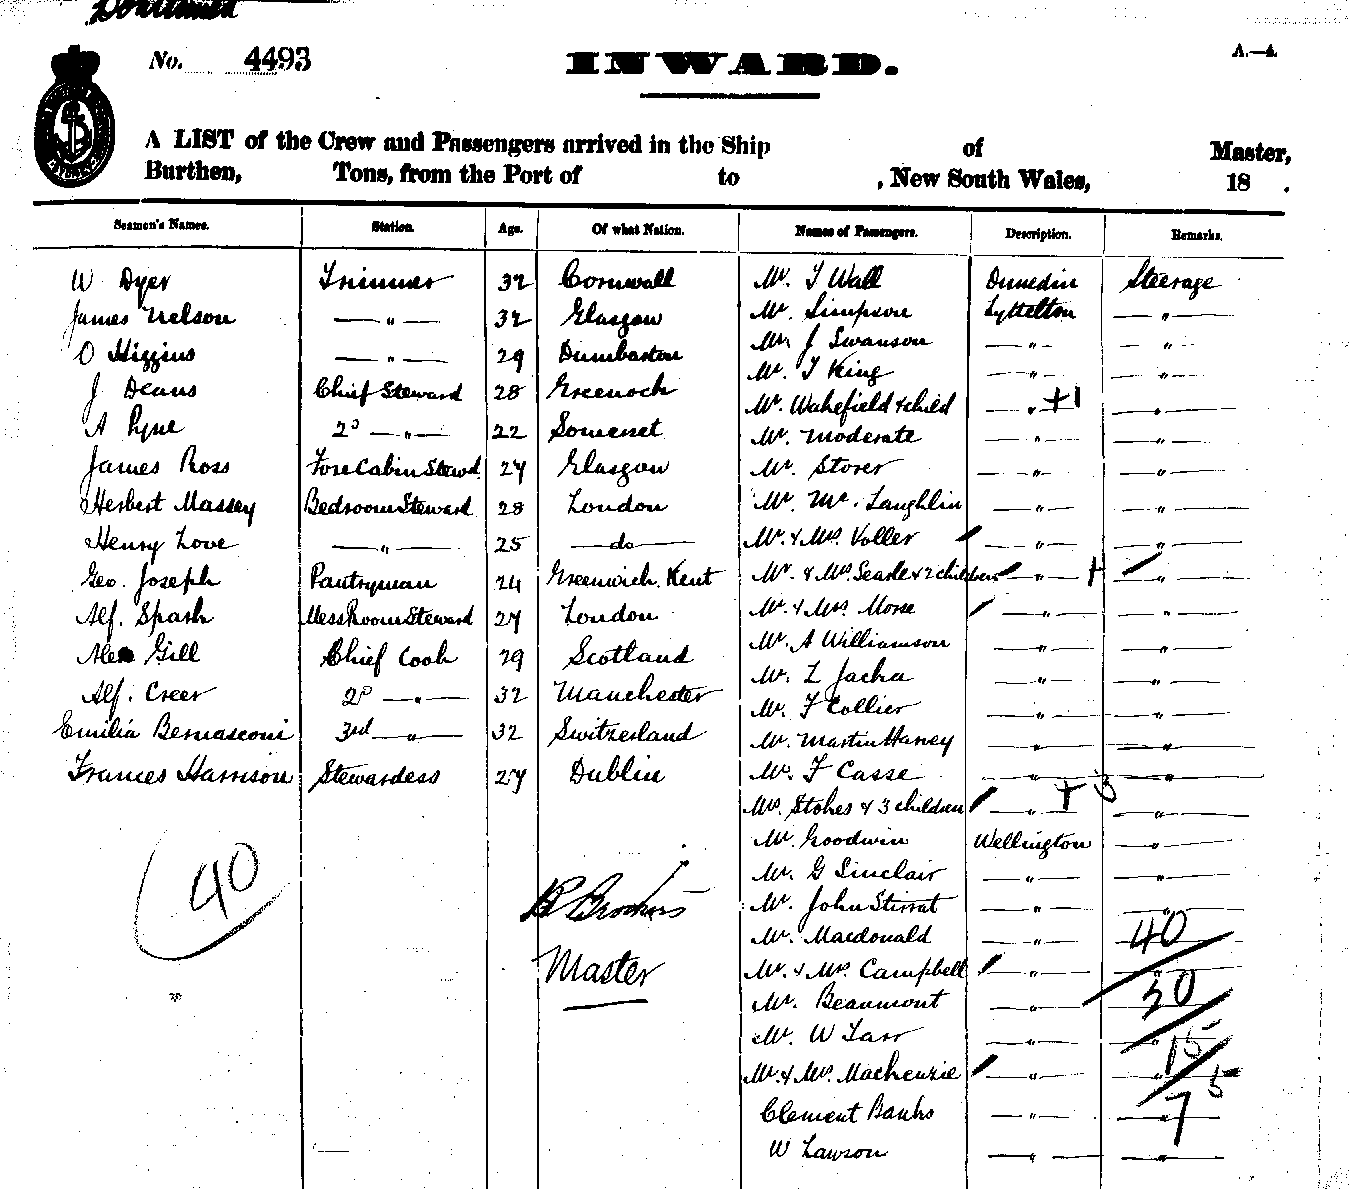 Continued
No. 4493 INWARD. A.—4.
A LIST of the Crew and Passengers arrived in the Ship of Master,
Burthen, Tons, from the Port of to , New South Wales, 18 .
Seamen's Names. Station. Age. Of what Nation. Names of Passengers. Description. Remarks.
W Dyer Trimmer 32 Cornwall Mr. T Wall Dunedin Steerage
James Nelson — " — 32 Glasgow Mr. Simpson Lyttelton — " —
O Higgins — " — 29 Dumbarton Mr. J Swanson — " — — " —
Mr. T King — " — — " —
J Deans Chief Steward 28 Greenock Mr. Wakefield & child — " — +1 — " —
A Pyne 2D — " — 22 Somerset Mr. Moderate — " — — " —
James Ross Fore Cabin Stewd 27 Glasgow Mr. Storer — " — — " —
Herbert Massey Bedroom Steward 28 London Mr. Mc. Laughlin — " — — " —
Henry Love — " — 25 —do— Mr. & Mrs. Voller — " — — " —
Geo. Joseph Pantryman 24 Greenwich. Kent Mr. & Mrs. Searle & 2 children — " — + — " —
Alf. Spash Mess Room Steward 27 London Mr. & Mrs. Morse — " — — " —
Alex Gill Chief Cook 29 Scotland Mr. A Williamson — " — — " —
Mr. L Jacka — " — — " —
Alf. Creer 2D — " — 32 Manchester Mr. F Collier — " — — " —
Emilia Bernasconi 3rd — " — 32 Switzerland Mr. Martin Harvey — " — — " —
Frances Harrison Stewardess 27 Dublin Mr. F Casse — " — — " —
Mrs. Stokes & 3 children — " — + 3 — " —
Mr. Goodwin Wellington — " —
40 Mr. G Sinclair — " — — " —
Mr. John Stirrat — " — — " —
Mr. Macdonald — " — 40
Master Mr. & Mrs. Campbell — " — — " —
Mr. Beaumont — " — 30
Mr. W Tarr — " — — " — 15
Mr. & Mrs. Mackenzie — " — — " — 5
Clement Banks — " — 7
W Lawson — " — — " —